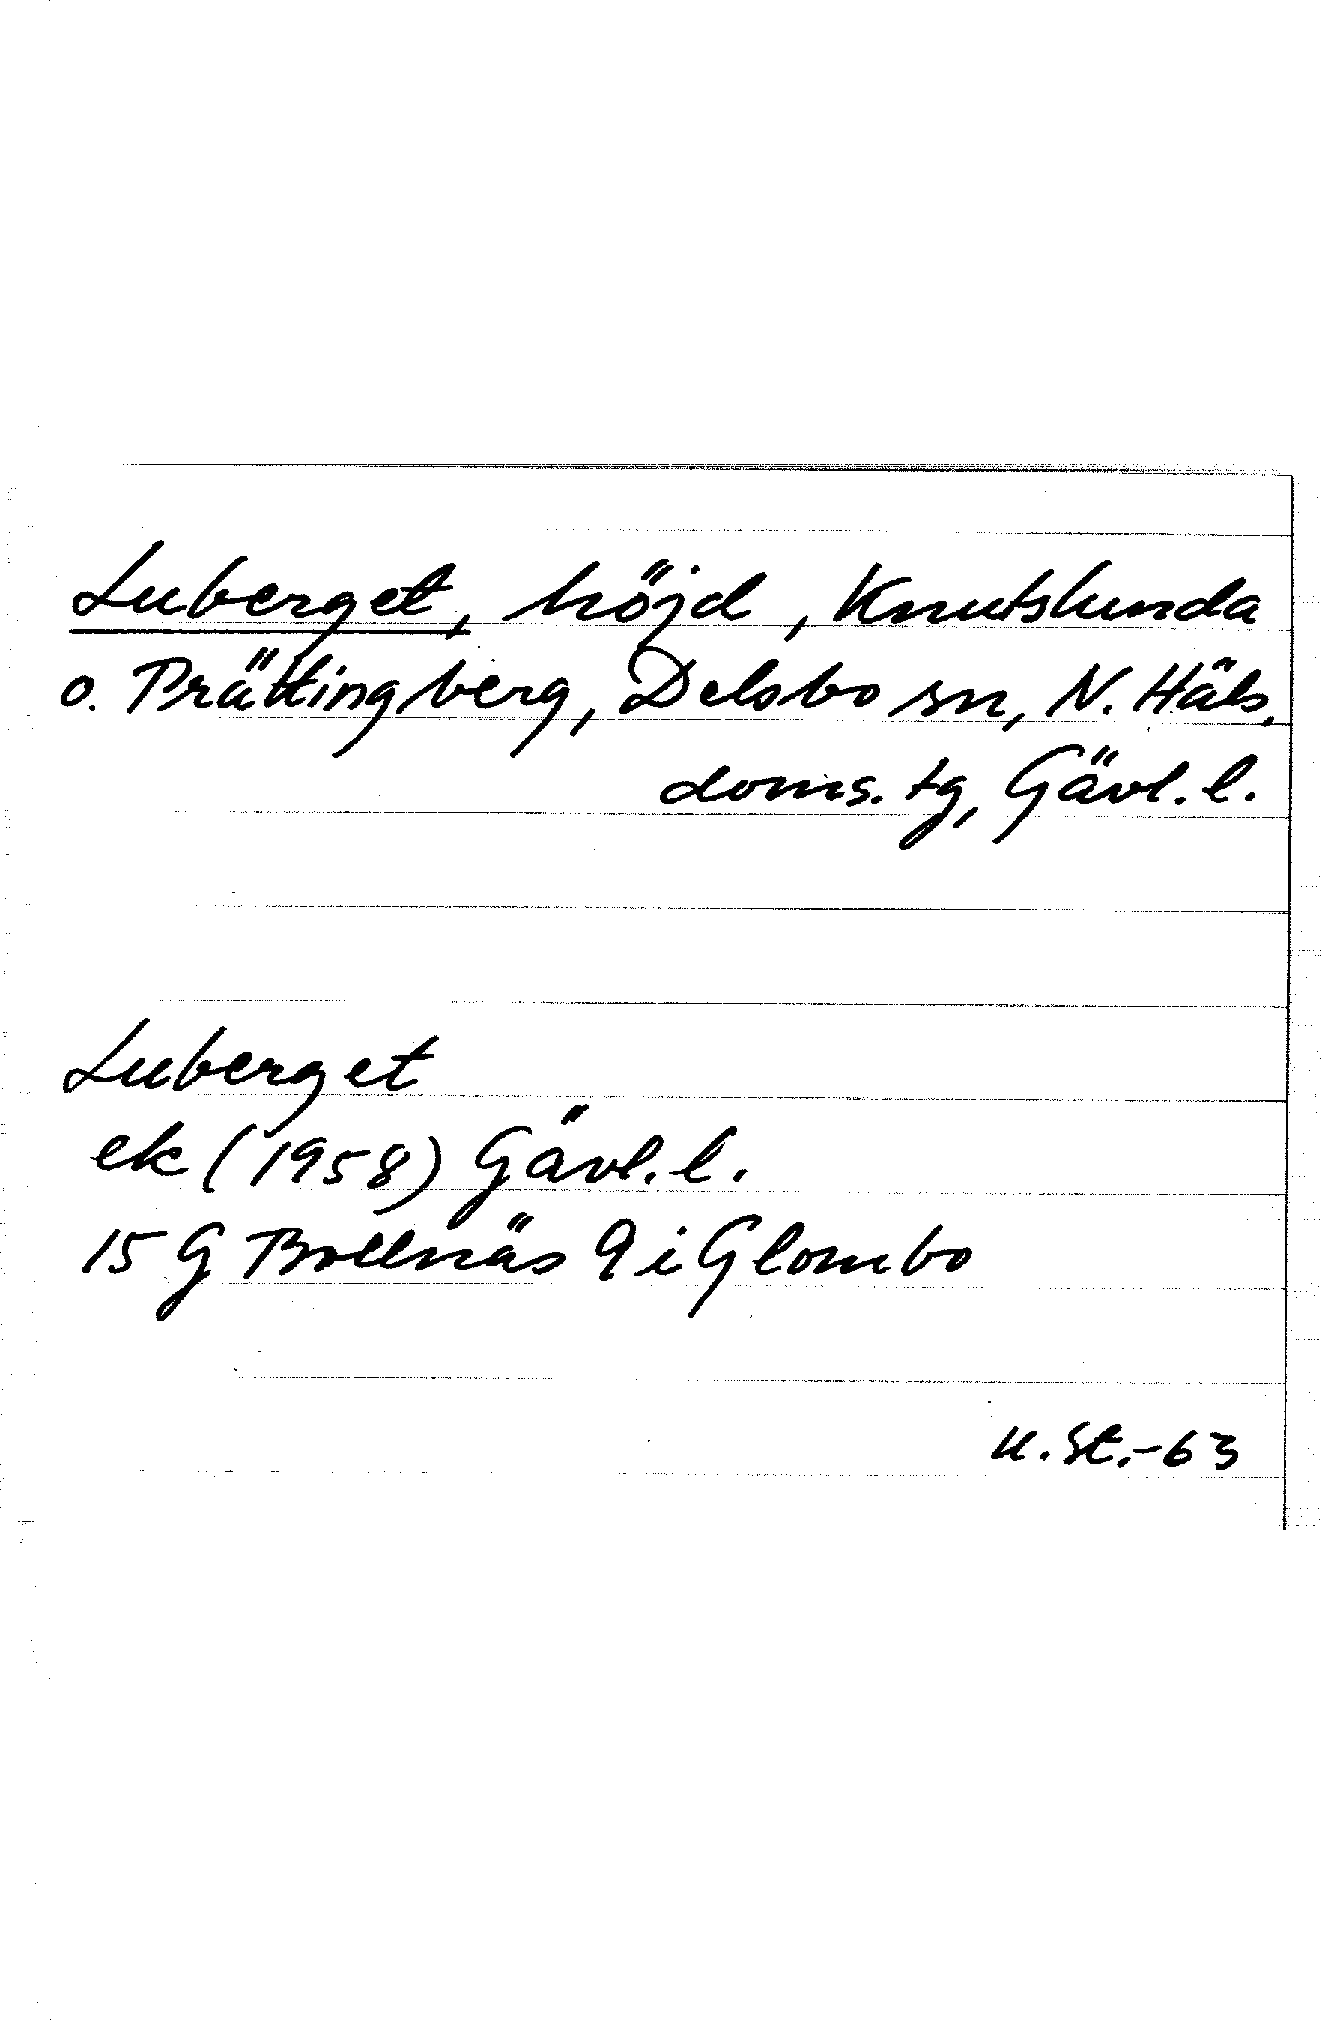 Luberget, höjd, Knutslunda
o. Prättingberg, Delsbo sn, N. Häls.
doms. tg, Gävl. l.
Luberget
ek (1958) Gävl. l.
15 G Bollnäs 9 i Glombo
U. St. -63